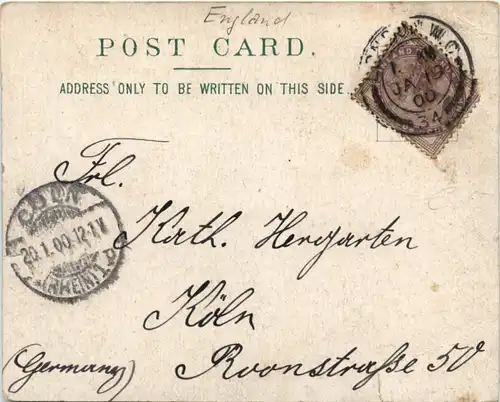 England
POST CARD.
ADDRESS ONLY TO BE WRITTEN ON THIS SIDE.
JA 19
00
34
Frl.
CÖLN
20.1.00.12-1N
(RHEIN)1
Kath. Hergarten
Köln
(Germany)
Roonstraße 50